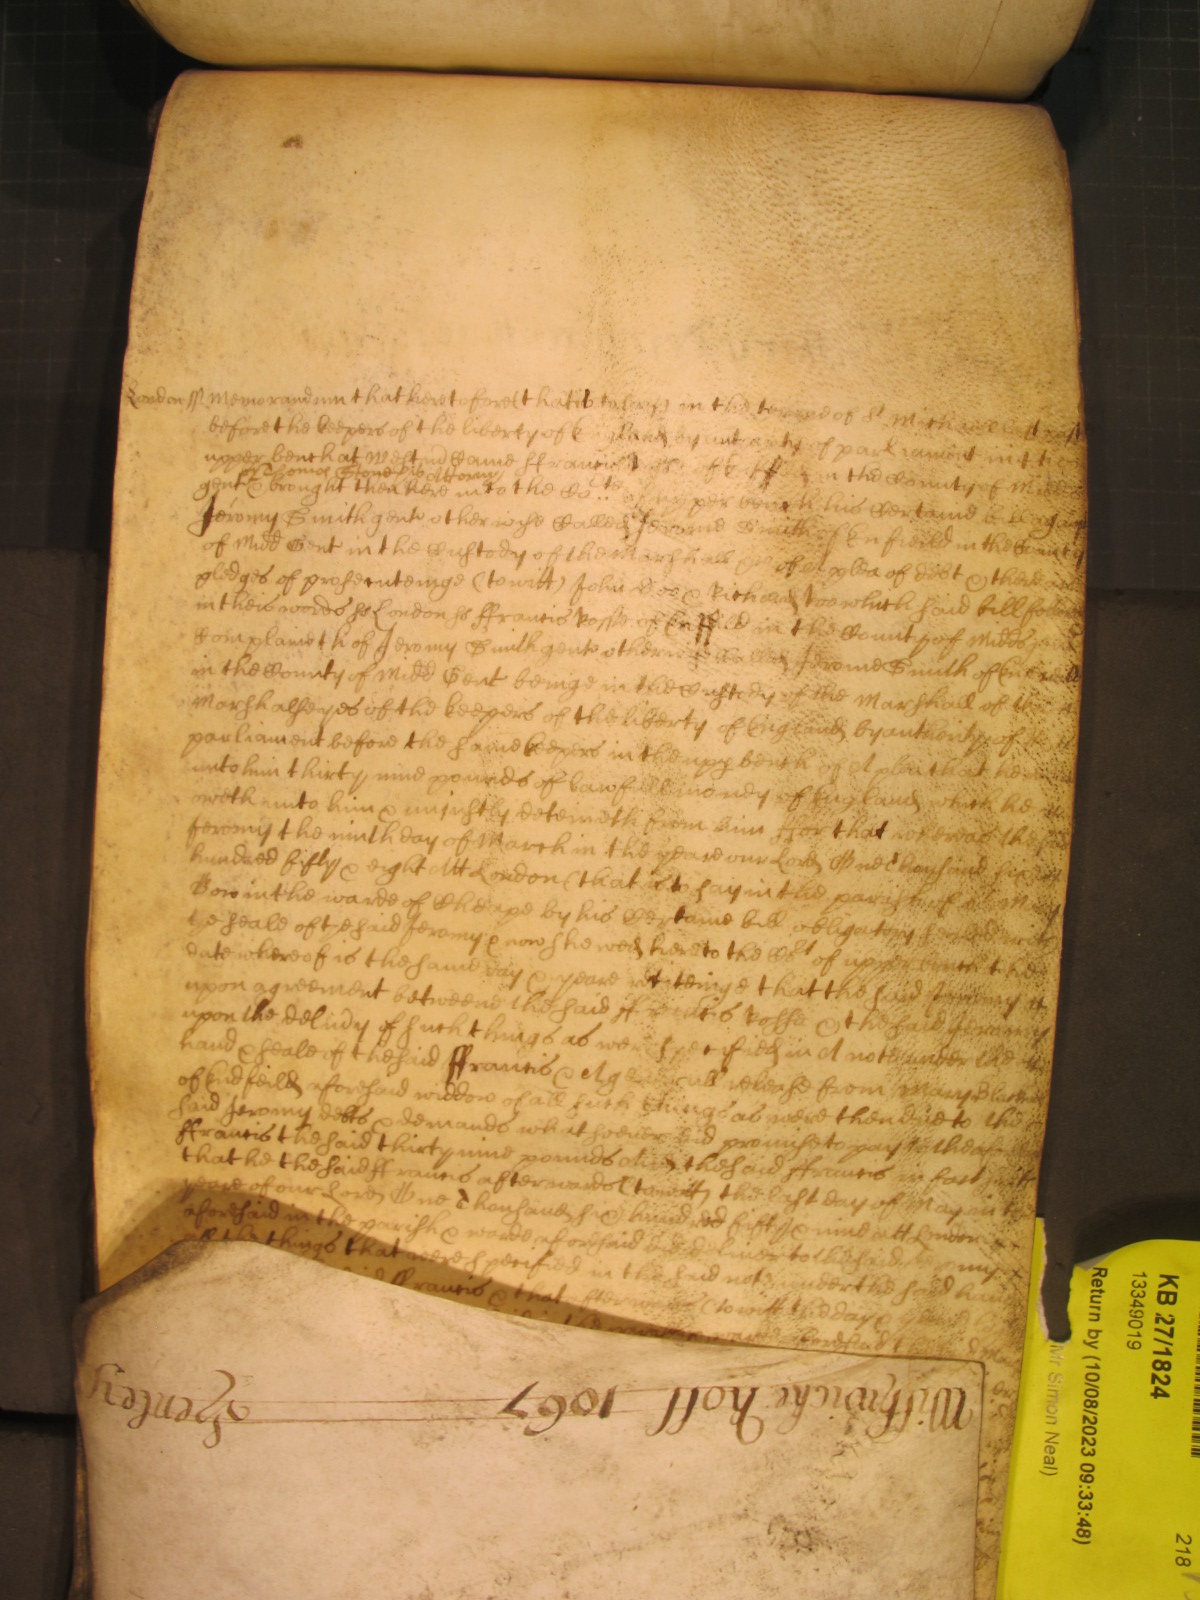 London ss Memorandum that heretofore (that is to say) in the terme of St Michaell last past
before the keepers of the liberty of England by authority of parliament in the
upper bench at Westm Came ffrancis Posse of Enffeild in the County of Midds
by Thomas Stone his Attorny
gent & brought then here into the Co:te of upper bench his Certaine bill against
Jeromy Smith gent otherwise Called Jerome Smith of Enfeild in the County
of Midd Gent in the Custody of the Marshall &c of a plea of debt & there are
pledges of prosecuteinge (to witt) John Doe & Richard Roo which said bill followes
in theis words ss London ss ffrancis Posse of Enffeild in the County of Midds gent
Complaineth of Jeromy Smith gent otherwise Called Jerome Smith of Enfeild
in the County of Midd Gent beinge in the Custody of the Marshall of the
Marshalseyes of the keepers of the liberty of England by authority of
parliament before the same keepers in the upp bench of A plea that he
unto him thirty nine pounds of lawfull money of England which he
oweth unto him & uniustly deteineth from him ffor that whereas the said
Jeromy the ninth day of March in the yeare our Lord One thousand six
hundred fifty & eight Att London (that is to say in the parish of Mary
Bow in the warde of Cheape by his Certaine bill obligatory sealed with
the seale of the said Jeromy & now shewed here to the Co:t of upper bench the
date whereof is the same day & yeare reciteinge that the said Jeromy
upon agreement betweene the said ffrancis Posse & the said Jeromy
upon the delivdy of such things as were specified in A note under the
hand & seale of the said ffrancis & A generall release from Mary
of Endfeild aforesaid widdow of all such things as were then due to the
said Jeromy debts & demands whatsoever did promise to pay to the
ffrancis the said thirty nine pounds And the said ffrancis in fact saith
that he the said ffrancis afterwards (to witt) the last day of May in the
yeare of our Lord One thousand six hundred fifty & nine att London
aforesaid in the parish & warde aforesaid did deliver to the said Jeromy
all the things that were specified in the said note under the said hand
ffrancis & that afterwards (to witt) the day &
aforesaid
Wightwicke Roll 1067 Henley
KB 27/1824
13349019
Return by (10/08/2023 09:33:48)
Mr Simon Neal)
218